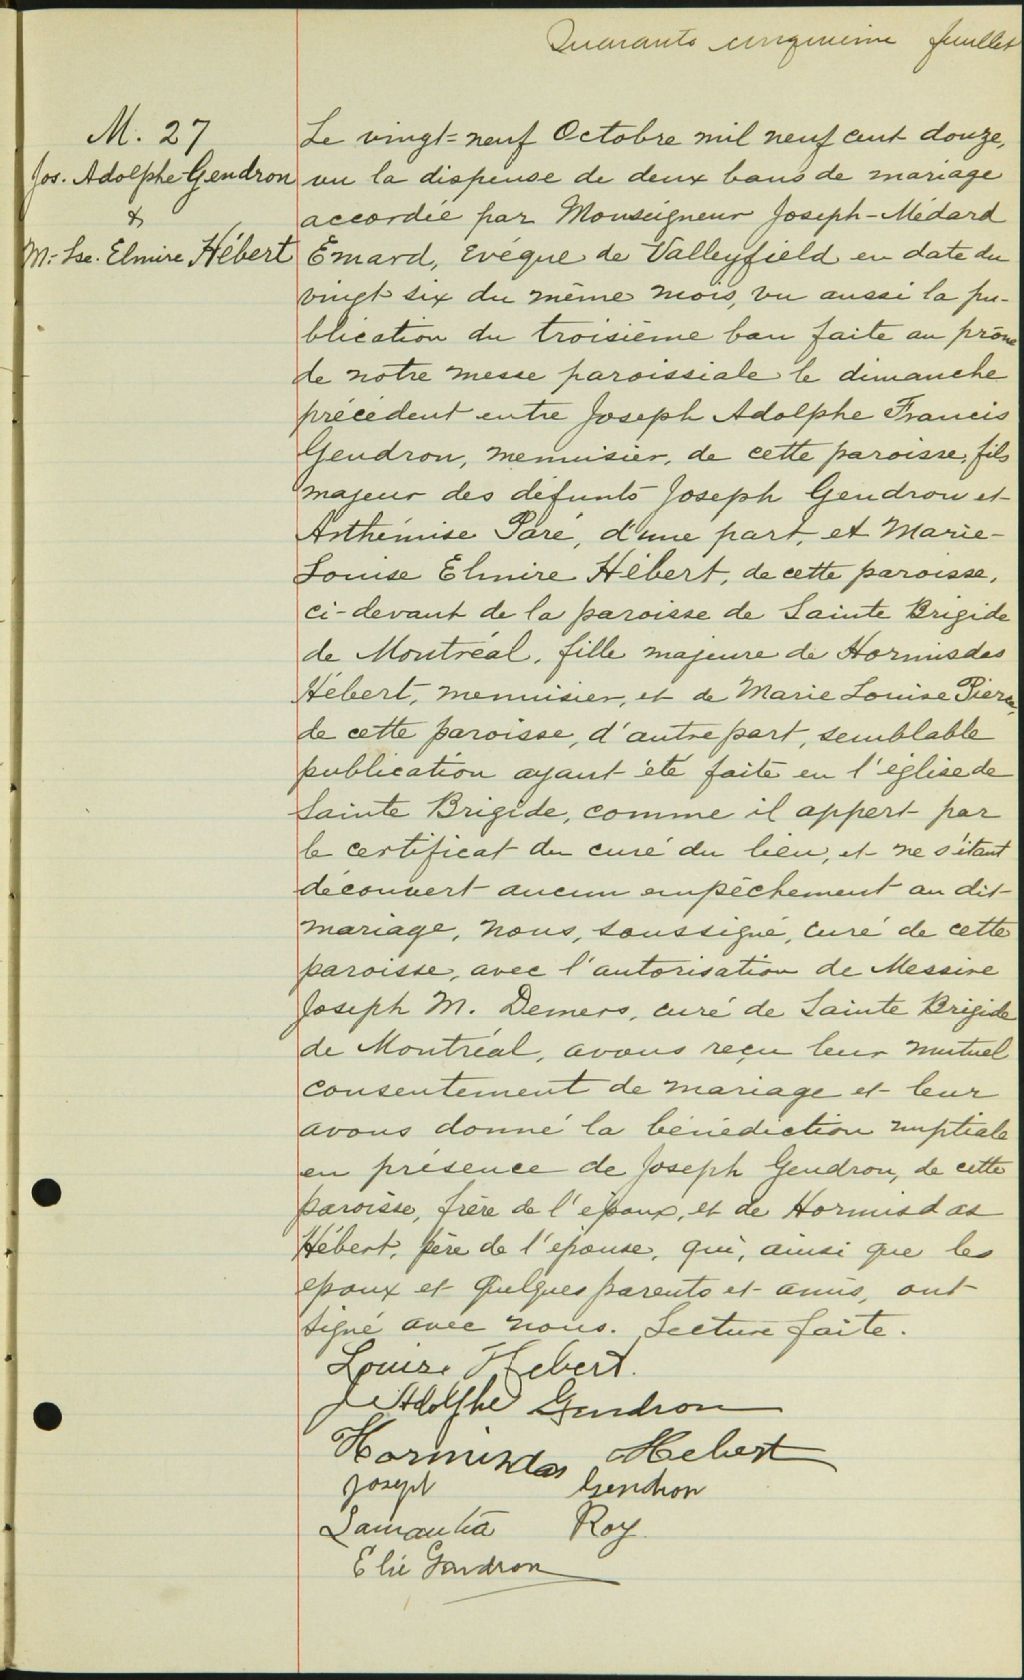 Quarante cinquième feuillet
M. 27
Jos. Adolphe Gendron
&
M.-Lse. Elmire Hébert
Le vingt-neuf Octobre mil neuf cent douze,
vu la dispense de deux bans de mariage
accordée par Monseigneur Joseph-Médard
Emard, Evêque de Valleyfield en date du
vingt six du même mois, vu aussi la pu-
blication du troisième ban faite au prône
de notre messe paroissiale le dimanche
précédent entre Joseph Adolphe Francis
Gendron, menuisier, de cette paroisse, fils
majeur des défunts Joseph Gendron et
Arthémise Paré, d'une part, et Marie-
Louise Elmire Hébert, de cette paroisse,
ci-devant de la paroisse de Sainte Brigide
de Montréal, fille majeure de Hormisdas
Hébert, menuisier, et de Marie Louise
de cette paroisse, d'autre part, semblable
publication ayant été faite en l'église de
Sainte Brigide, comme il appert par
le certificat du curé du lieu, et ne s'étant
découvert aucun empêchement au dit
mariage, nous, soussigné, curé de cette
paroisse, avec l'autorisation de Messire
Joseph M. Demers, curé de Sainte Brigide
de Montréal, avons reçu leur mutuel
consentement de mariage et leur
avons donné la bénédiction nuptiale
en présence de Joseph Gendron, de cette
paroisse, frère de l'époux, et de Hormisdas
Hébert, père de l'épouse, qui, ainsi que les
epoux et quelques parents et amis, ont
signé avec nous. Lecture faite.
Louise Hebert.
J Adolphe Gendron
Hormisdas Hebert
Joseph Gendron
Samantha Roy
Elie Gendron